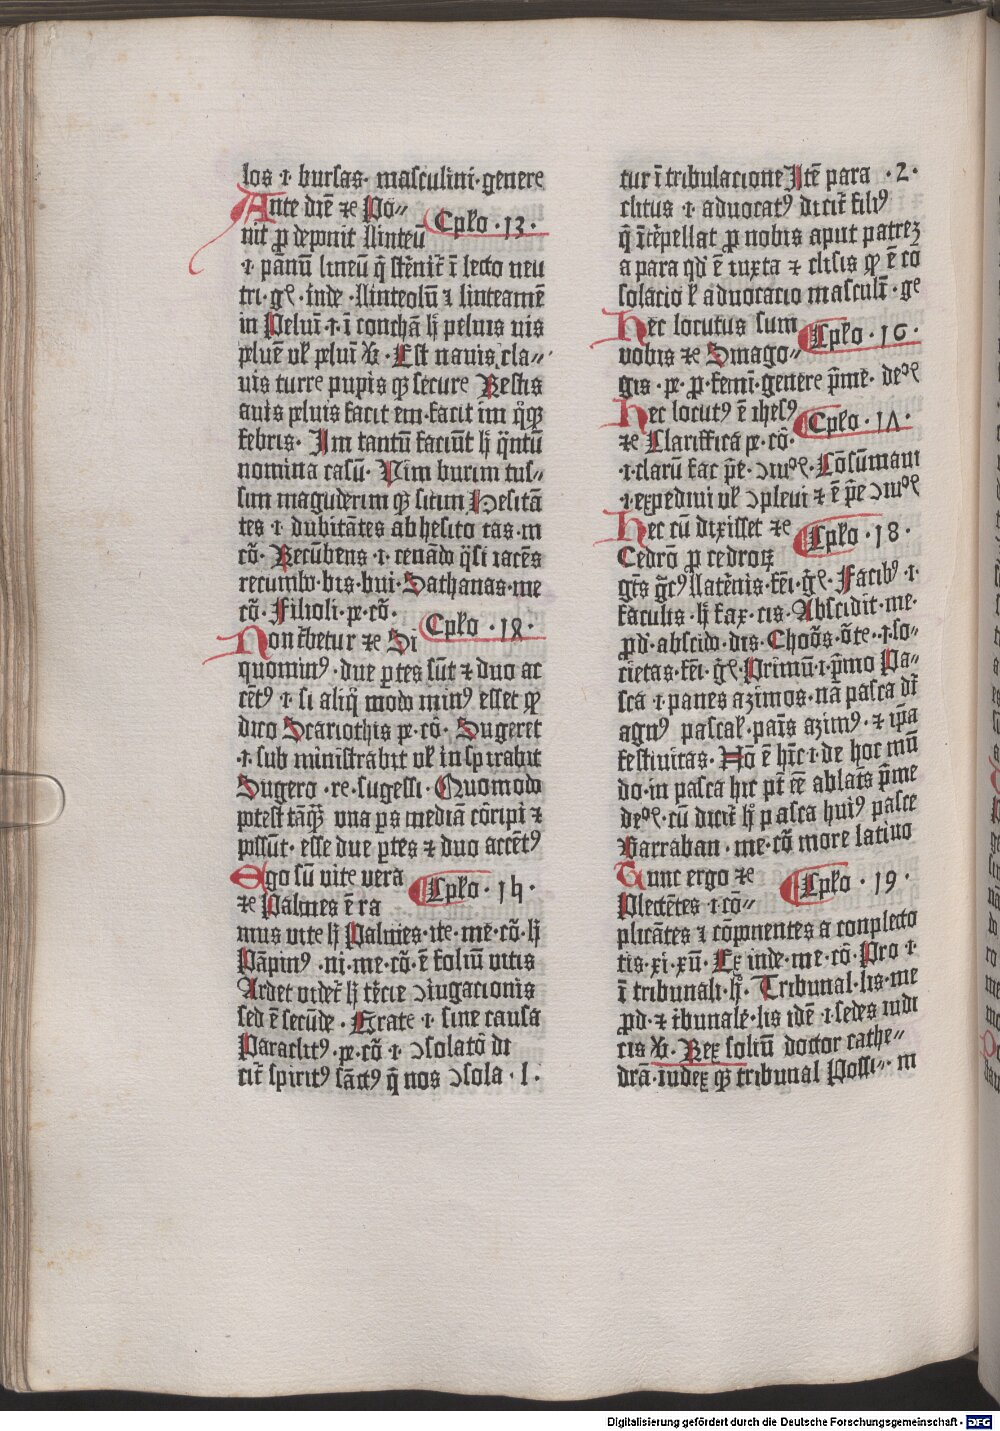 los ·i· bursas· masculini· genere
Ante diē ⁊c Po⸗
Cpło ·13·
nit ꝓ deponit llinteū
·i· pānū lineū q̄ stēnit̄ ī lecto neu
tri· gͤ· inde ·llinteolū ⁊ linteamē
in Peluī ·i· ī conchā h̄ peluis uis
pluē vł pluī V̄· Est nauis cla⸗
uis turre pupis qꝫ secure Restis
auis pluis facit em· facit im q̊qꝫ
febris· Im tantū faciūt h̄ q̄ntū
nomina casū· Vim burim tus⸗
sim maguderim qꝫ sitim Hesitā
tes ·i· dubitātes ab hesito tas· m
cō· Recūbens ·i· cenādo q̄si iacēs
recumbo· bis· bui· Sathanas· me
cō· Filioli· pe· cō·
Cpło ·1ꝝ·
Non t̄betur ⁊c Si
quominꝰ· due ꝑtes sūt ⁊ duo ac
cētꝰ ·i· si aliq̄ modo minꝰ esset qꝫ
dico Scariothis pe· cō· Sugeret
·i· sub ministrabit vł inspirabit
Sugero ·re· sugessi· Quomodo
potest tāqꝫ vna ps mediā cōripi ⁊
possūt· esse due ꝑtes ⁊ duo accētꝰ
Ego sū vite vera
Cpło ·1h·
⁊c Palmes ē ra
mus vite h̄ Palmes· ite· me· cō· h̄
Pāpinꝰ ·ni· me· cō· ē foliū vitis
Ardet videt̄ h̄ tēcie ↄiugacionis
sed ē secūde· Frate ·i· sine causa
Paraclitꝰ· pe· cō ·i· ↄsolatō di
cit̄ spiritꝰ sāctꝰ q̄ nos ↄsola· l·
tur ī tribulacione Itē para ·2·
clitus ·i· aduocatꝰ dicit̄ filiꝰ
q̄ ītēpellat ꝓ nobis aput patreꝫ
a para qd̄ ē iuxta ⁊ clisis qꝫ ē cō
solacio ł aduocacio masculī· ge
Hec locutus sum
Cpło ·16·
vobis ⁊c Sinago⸗
gis· pe· ꝓ· femī· genere p̄me· deᵒͤ
Hec locutꝰ ē ihesꝰ
Cpło ·1Λ·
⁊c Clariffica pe· cō·
·i· clarū fac p̄e· ↄiuᵒͤ· Cōsūmaui
·i· expediui vł ↄpleui ⁊ ē p̄e ↄiuᵒͤ
Hec cū dixisset ⁊c
Cpło ·18·
Cedrō ꝓ cedroꝝ
gt̄s ḡcꝰ llatēnis· fēi· ḡͤ· Facibꝰ ·i·
faculis· h̄ fax· cis· Abscidit· me·
ꝓd· abscido· dis· Chohōs· ōte· ·i· so⸗
cietas· fēi· ḡͤ· Primū ·i· p̄mo Pa⸗
sca ·i· panes azimos· nā pasca dr̄
agnꝰ pascał· pāis azimꝰ· ⁊ ip̄a
festiuitas· Hō ē hīc ·i· de hoc mū
do· in pasca hic pt̄ eē ablat̄s p̄me
deᵒͤ· cū dicit̄ h̄ pasca huiꝰ pasce
Barraban· me· cō more latino
Tunc ergo ⁊c
Cpło ·19·
Plectētes ·i· cō⸗
plicātes ⁊ cōponentes a conplecto
tis· xi· xū· Ex inde· me· cō· Pro ·i·
ī tribunali· h̊· Tribunal· lis· me
ꝓd· ⁊ tibunalē· lis idē ·i· sedes iudi
cis V̄· Rex soliū doctor cathe⸗
drā· iudex qꝫ tribunal Possi⸗ m
Digitalisierung gefördert durch die Deutsche Forschungsgemeinschaft · DFG